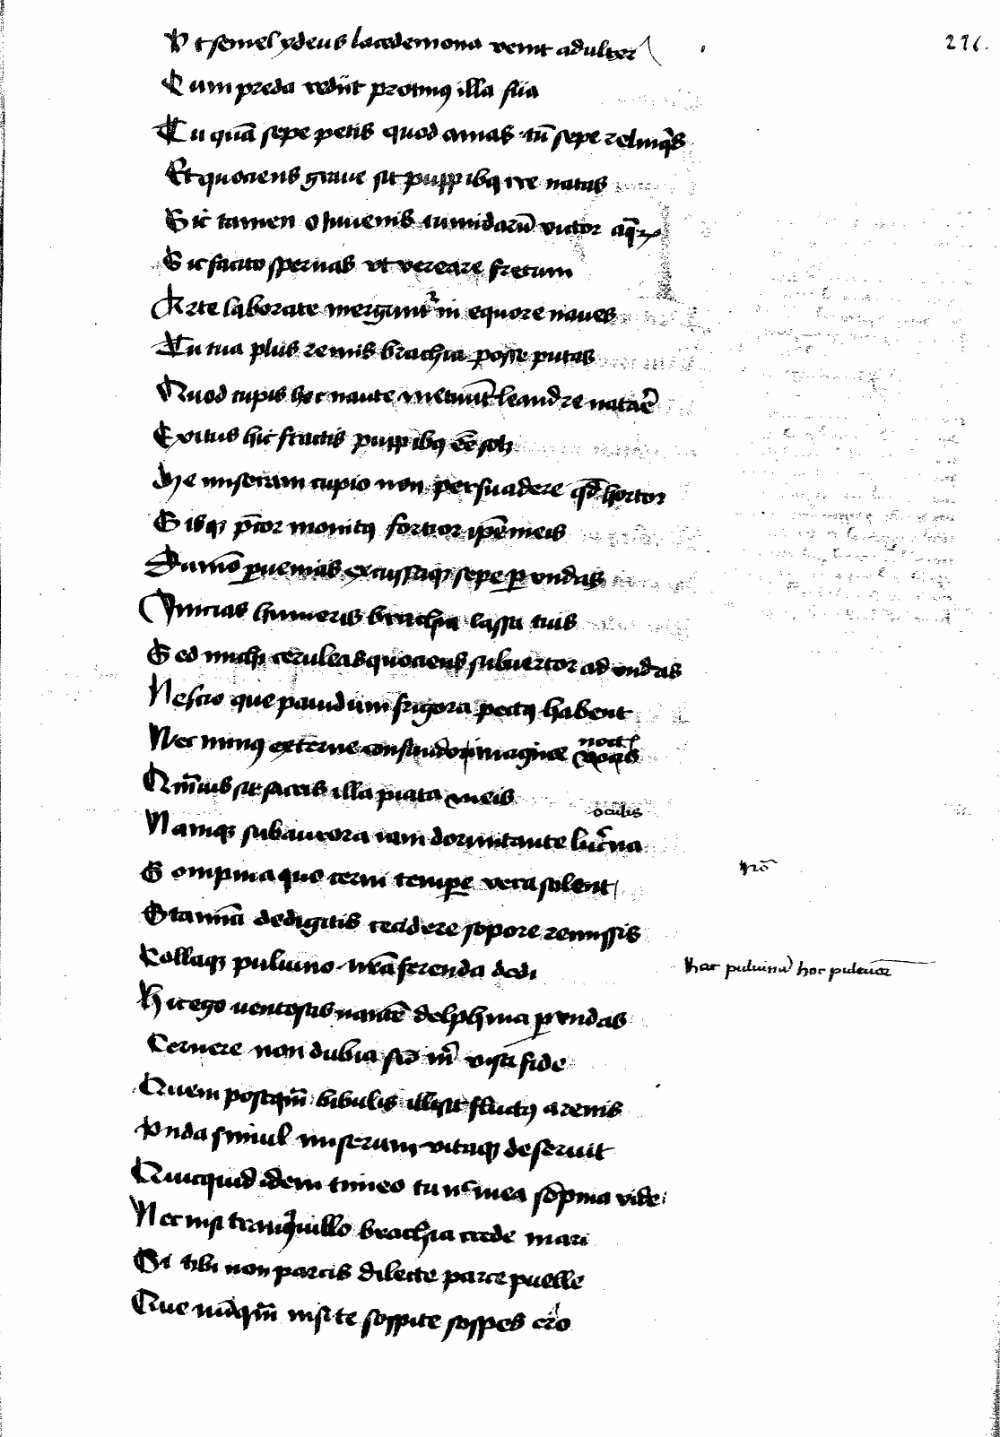 216.
Vt semel ydeus lacedemona venit adulter
Cum preda rediit protinꝰ illa sua
Tu quā sepe petis quod amas tū sepe relinqͥs
Et quociens graue sit puppibꝫ ire natas
Sic tamen o iuuenis tumidarū victor aqꝝ
Sic facito spernas vt vereare fretum
Arte laborate merguntᷣ in equore naues
Tu tua plus remis brachia posse putas
Quod cupis hoc naute metuūt leandre natarē
Exitus hic fractis puppibꝫ eē sol3
Me miseram cupio non persuadere qd̄ hortor
Sisqꝫ p̄cor monitꝰ forcior ip̄e meis
Dum̄o ꝑuenias excussaqꝫ sepe ꝑ vndas
Iniicias humeris brachia lassa tuis
Sed mich ceruleas quociens subuertor ad vndas
Nescio que pauidum frigora pectꝰ habent
Nec minꝰ externe confundor imagine
noct
Qm̄uis sit sacris illa piata meis
oculis
Namqꝫ sub aurora iam dormitante luc̄na
Sompnia quo cerni tempe vera solent
Stamīa de digitis cecidere sopore remissis
Collaqꝫ puluino nrā ferenda dedi
hoc puluinar hoc puluiar
Hic ego ventosas nantē delphina ꝑ vndas
Cernere non dubia sū m̄ visa fide
Quem postqm̄ bibulis illisit fluctꝰ arenis
Vnda simul miserum vitaqꝫ deseruit
Quicquid idem timeo tu nͨ mea sōpnia ride
Nec nisi tranqͥuillo brachia crede mari
Si tibi non parcis dilecte parce puelle
Que nūqm̄ nisi te sospite sospes ero